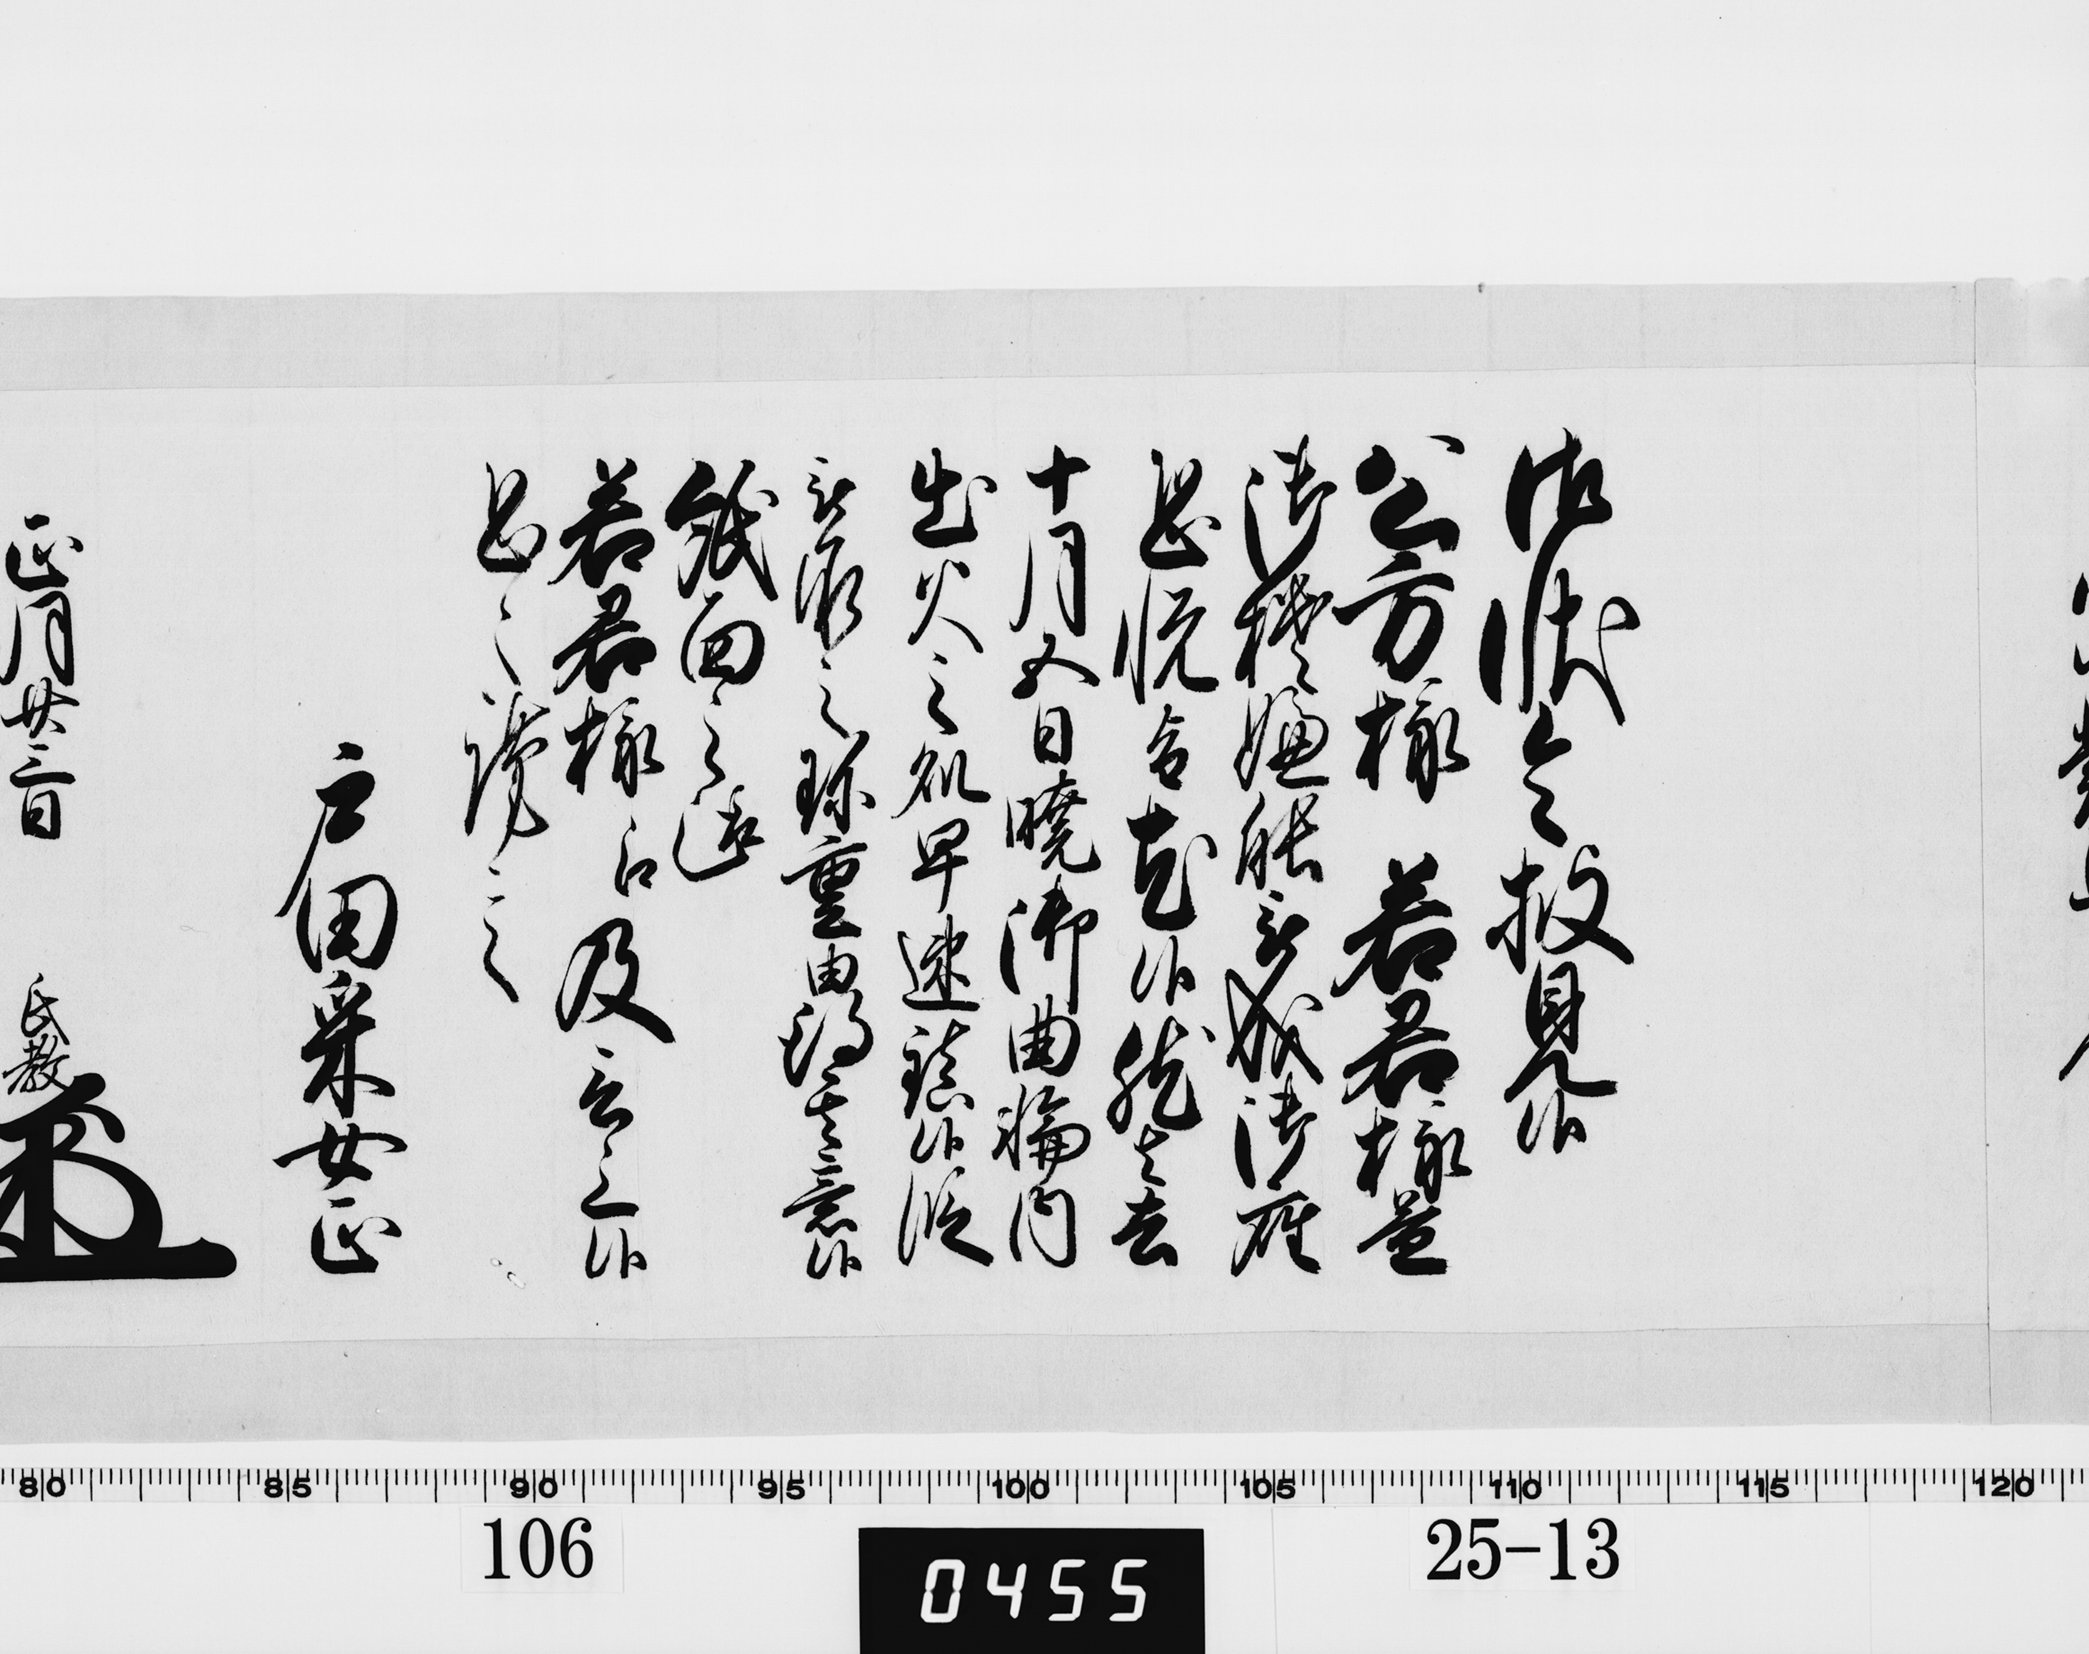 御状令披見候
公方様 若君様益
御機嫌能被成御座
恐悦旨尤候然者去
十月五日暁御曲輪内
出火之処早速鎮候段
被承之珍重由得其意候
紙面之趣
若君様江及言上候
恐々謹言
戸田采女正
正月廿三日
氏教
80 85 90 95 100 105 110 115 120
106
25-13
0455